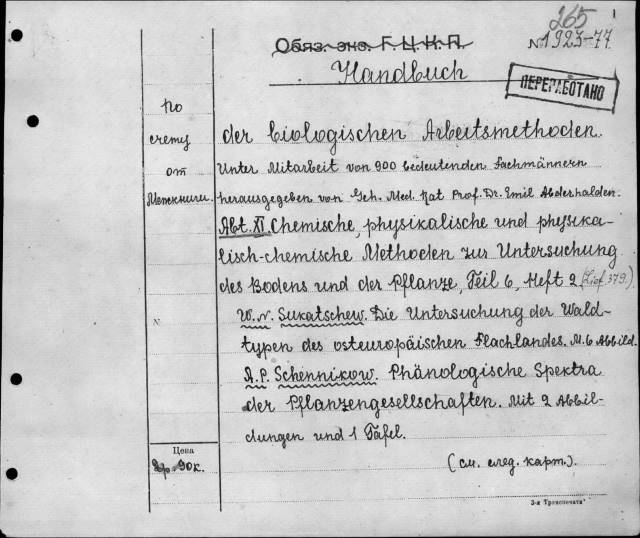 265
№1923-77
Обяз. экз. Г.Ц.К.П.
Handbuch
ПЕРЕРАБОТАНО
по
счету
от
Межкниги.
der biologischen Arbeitsmethoden.
Unter Mitarbeit von 900 bedeutenden Fachmännern
herausgegeben von Geh. Med. Rat Prof. Dr. Emil Abderhalden.
Abt. XI. Chemische, physikalische und physika-
lisch-chemische Methoden zur Untersuchung
des Bodens und der Pflanze, Teil 6, Heft 2 (Lief. 379.)
N
W.N. Sukatschew. Die Untersuchung der Wald-
typen des osteuropäischen Flachlandes. M. 6 Abbild.
A.P. Schennikow. Phänologische Spektra
der Pflanzengesellschaften. Mit 2 Abbil-
dungen und 1 Tafel.
Цена
2р. 90к.
(см. след. карт.).
3-я Транспечать